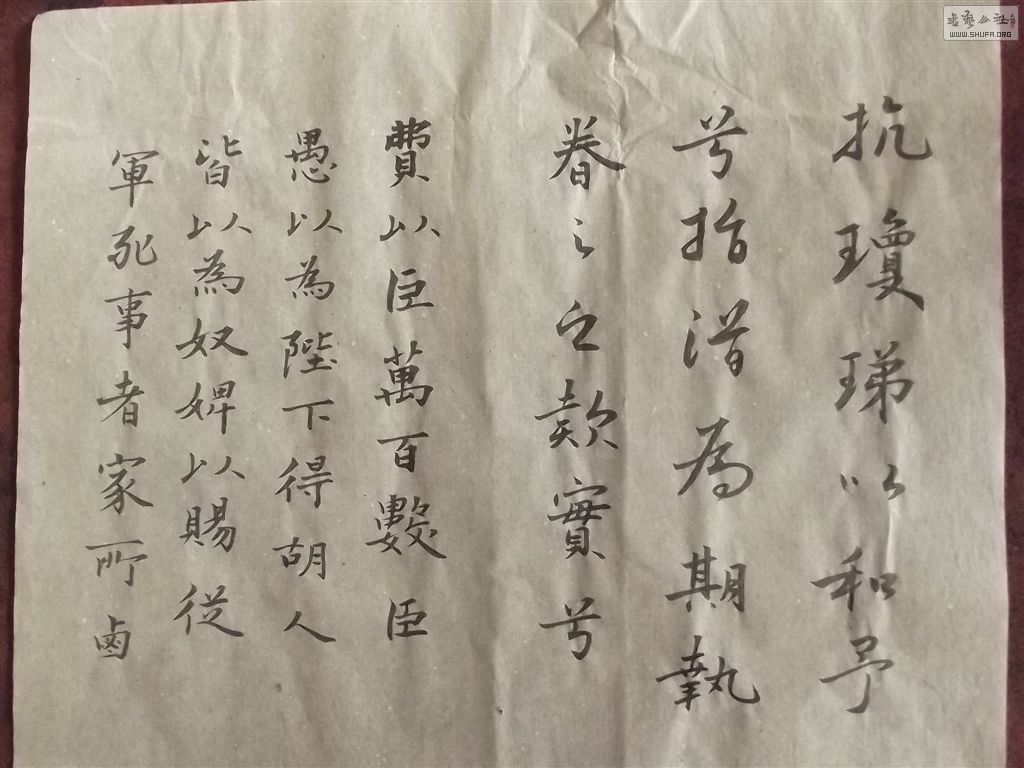 抗瓊珶以和予
兮指潛為期執
眷々之款實兮
費以臣萬百數臣
愚以為陛下得胡人
皆以為奴婢以賜從
軍死事者家所鹵
書藝公社
WWW.SHUFA.ORG